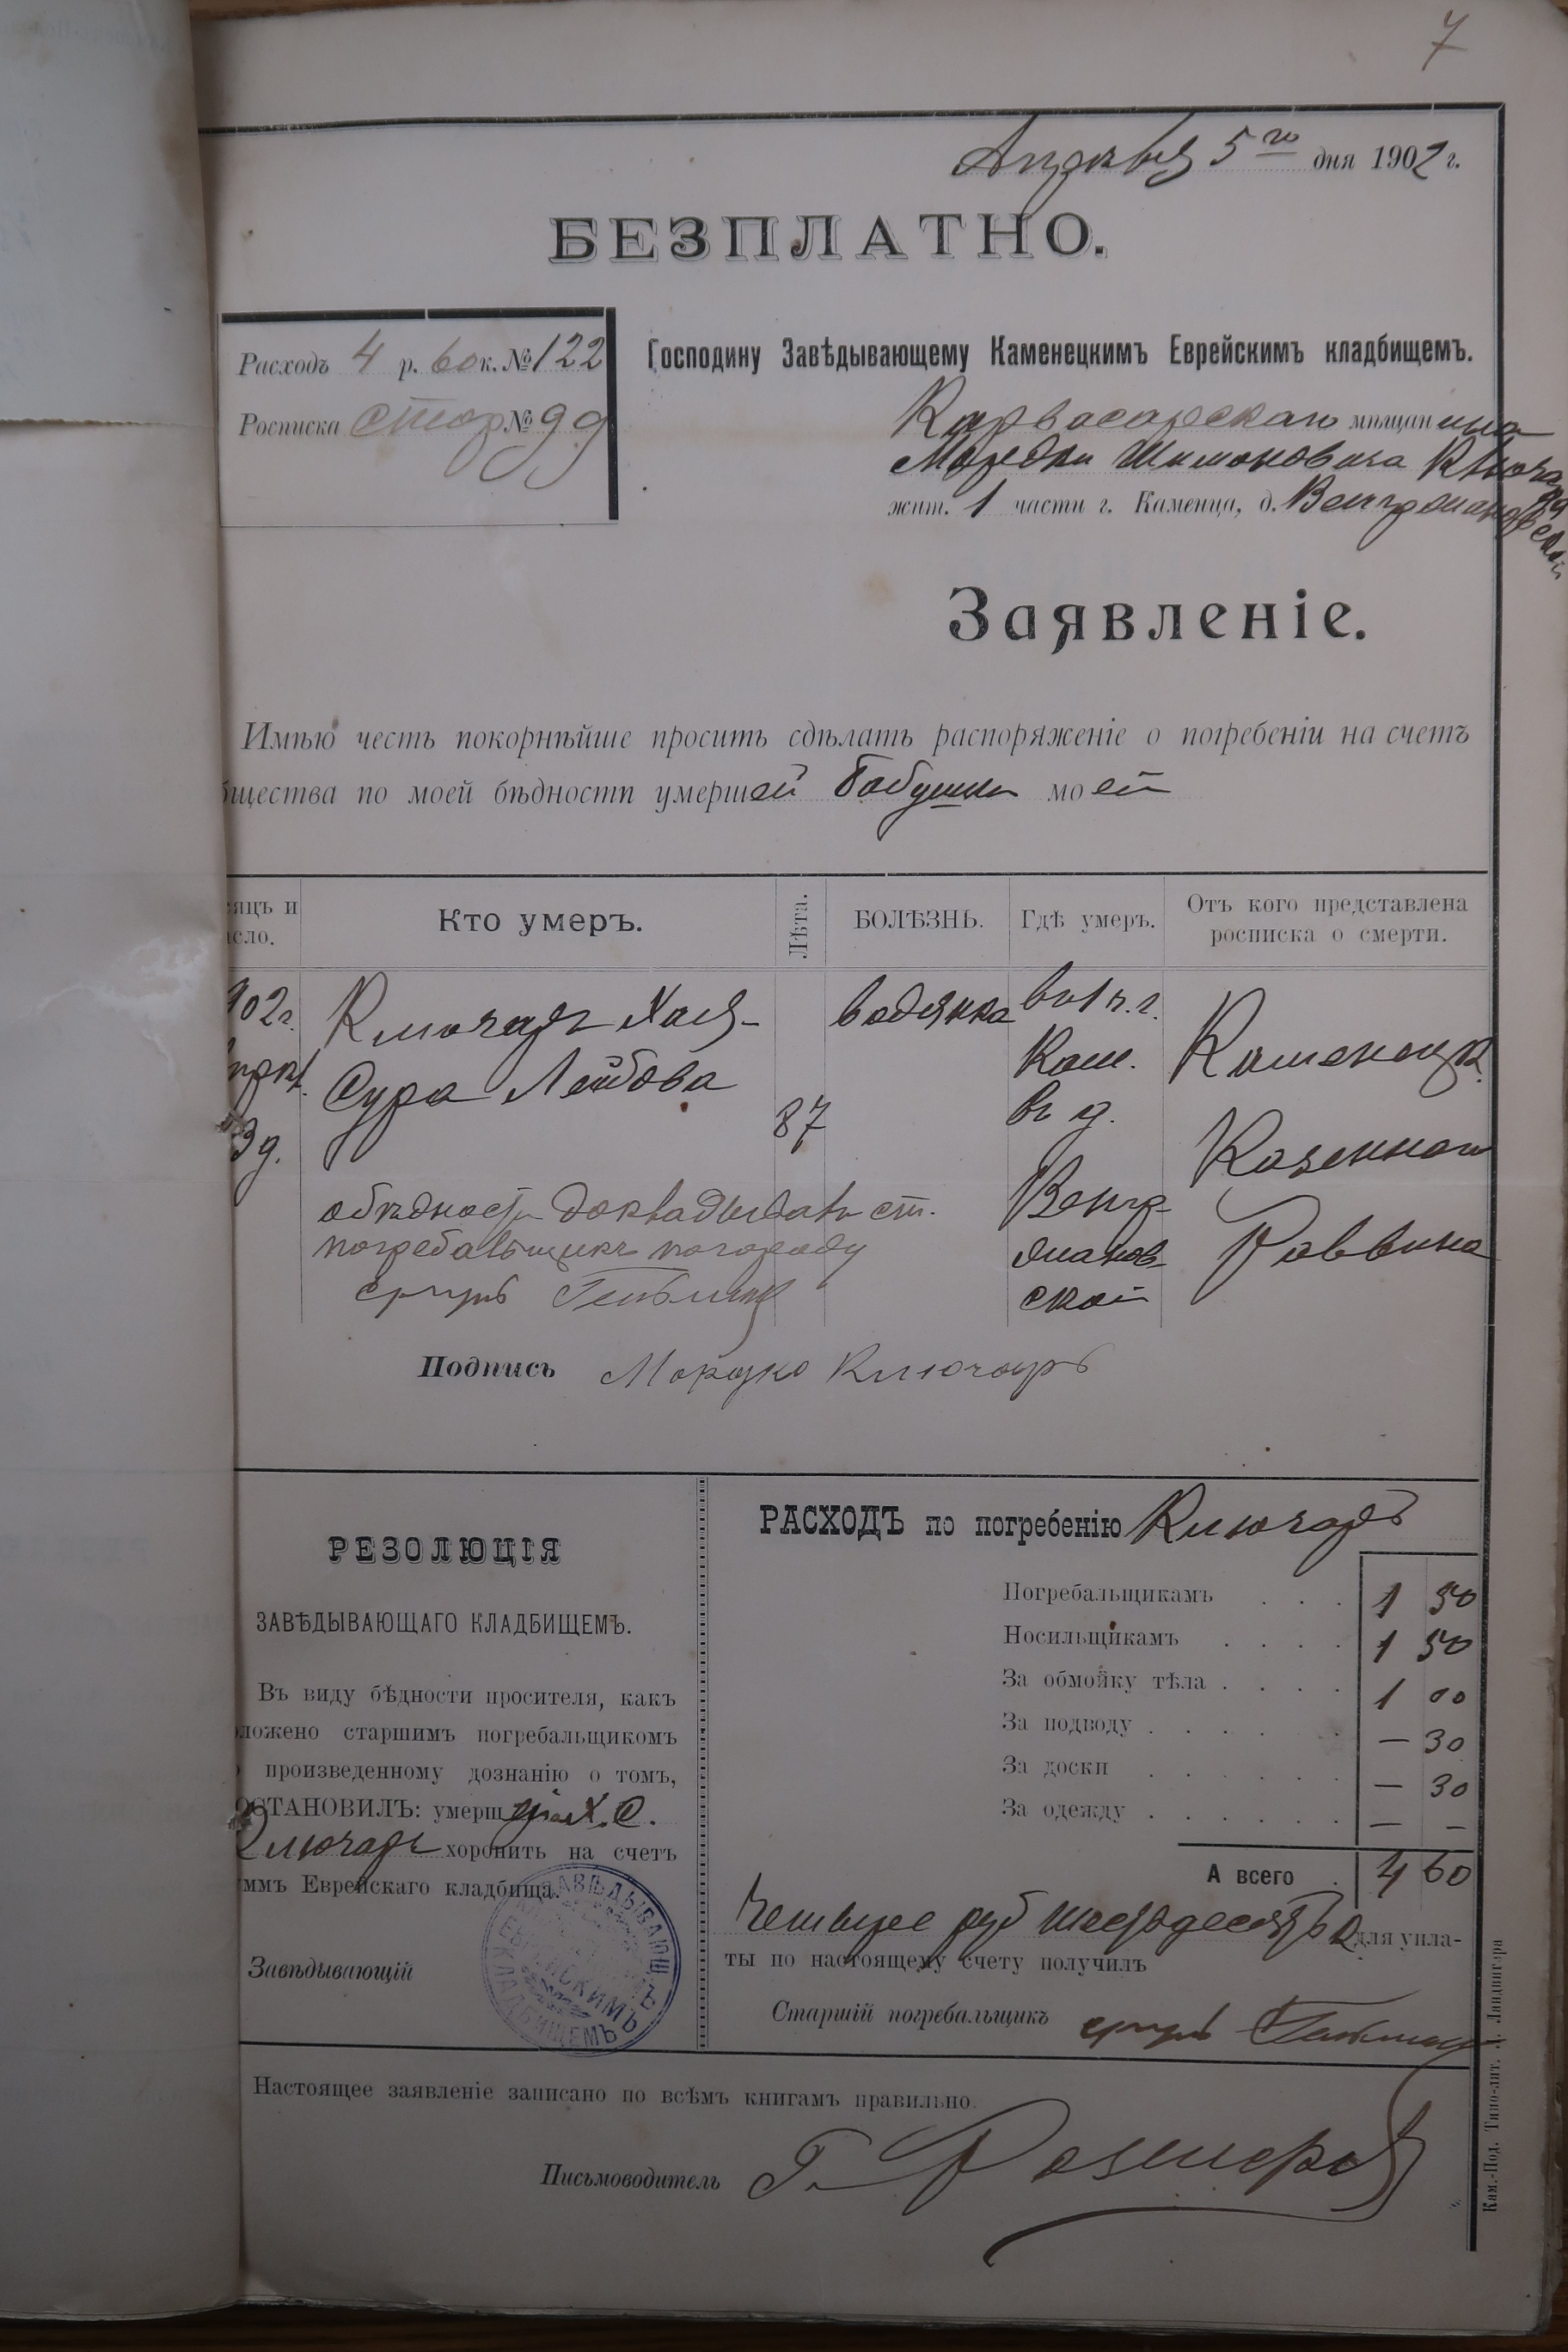 7
Апрѣля 5го дня 1902 г.
БЕЗПЛАТНО.
Расходъ 4 р. 60 к. № 122
Росписка стар № 99
Господину Завѣдывающему Каменецкимъ Еврейскимъ кладбищемъ.
Карвасарскаго мѣщанина
Мордки Шимоновича Ключаря
жит. 1 части г. Каменца, д. Венгржановской
Заявленіе.
Имѣю честь покорнѣйше просить сдѣлать распоряженіе о погребеніи на счетъ
бщества по моей бѣдности умершей бабушки моей
яцъ и
сло.
Кто умеръ.
Лѣта.
БОЛѢЗНЬ.
Гдѣ умеръ.
Отъ кого представлена
росписка о смерти.
902 г.
3 д.
Ключарь Хая-
Сура Лейбова
87
водянка
въ 1 ч. г.
Кам.
въ д.
Венгр-
жанов-
ской
Каменецк.
Казеннаго
Раввина
обѣдности докладываетъ ст.
погребальщикъ
Подпись Мордко Ключарь
РЕЗОЛЮЦІЯ
ЗАВѢДЫВАЮЩАГО КЛАДБИЩЕМЪ.
Въ виду бѣдности просителя, какъ
ложено старшимъ погребальщикомъ
произведенному дознанію о томъ,
ОСТАНОВИЛЪ: умерш Х. С.
Ключарь хоронить на счетъ
ммъ Еврейскаго кладбища.
Завѣдывающій
ЗАВѢДЫВАЮЩ ЕВРЕЙСКИМЪ КЛАДБИЩЕМЪ
РАСХОДЪ по погребенію Ключарь
Погребальщикамъ . . . 1 50
Носильщикамъ . . . . 1 50
За обмойку тѣла . . . . 1 00
За подводу . . . . . . — 30
За доски . . . . . . — 30
За одежду . . . . . . — –
А всего . 4 60
Четыре руб шестьдесятъ к для упла-
ты по настоящему счету получилъ
Старшій погребальщикъ
Настоящее заявленіе записано по всѣмъ книгамъ правильно.
Письмоводитель Г.
Кам.-Под. Типо-лит. Л. Ландвигера